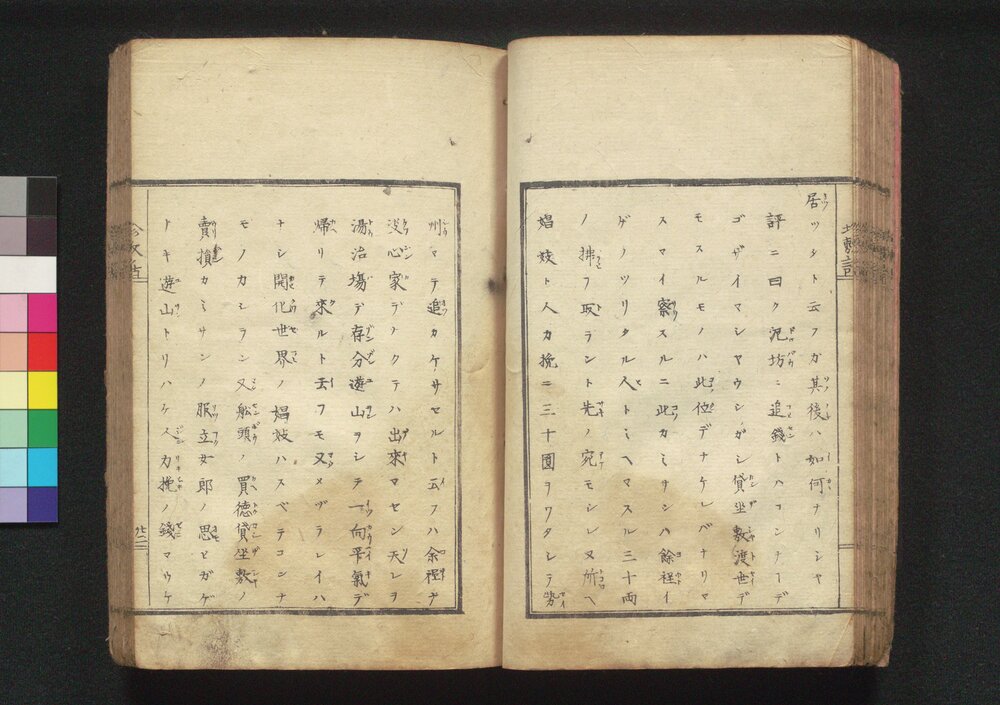 居ツシト云フガ其後ハ如何ナリシヤ
評ニ曰ク泥坊ニ追錢トハコンナコデ
ゴザイマシヤウシガシ貸坐敷渡世デ
モスルモノハ此位デナケレバナリマ
スマイ察スルニ此カミサンハ餘程イ
ゲノツリタル人トミヘマスル三十両
ノ拂フ取ラント先ノ宛モシレヌ所ヘ
娼妓ト人力挽ニ三十圓ヲワタシテ勢
州マテ追カケサセルト云フハ余程ヂ
没心家デナクテハ出來マセン夭レヲ
湯治場デ存分遊山ヲシテ一向平氣デ
帰リテ來ルト云フモ又メヅラシイハ
ナシ開化世界ノ娼妓ハスベテコンナ
モノカシラン又舩頭ノ買徳貸坐敷ノ
賣損カミサンノ服立女郎ノ思ヒガゲ
トキ遊山トリハケス力挽ノ錢マウケ